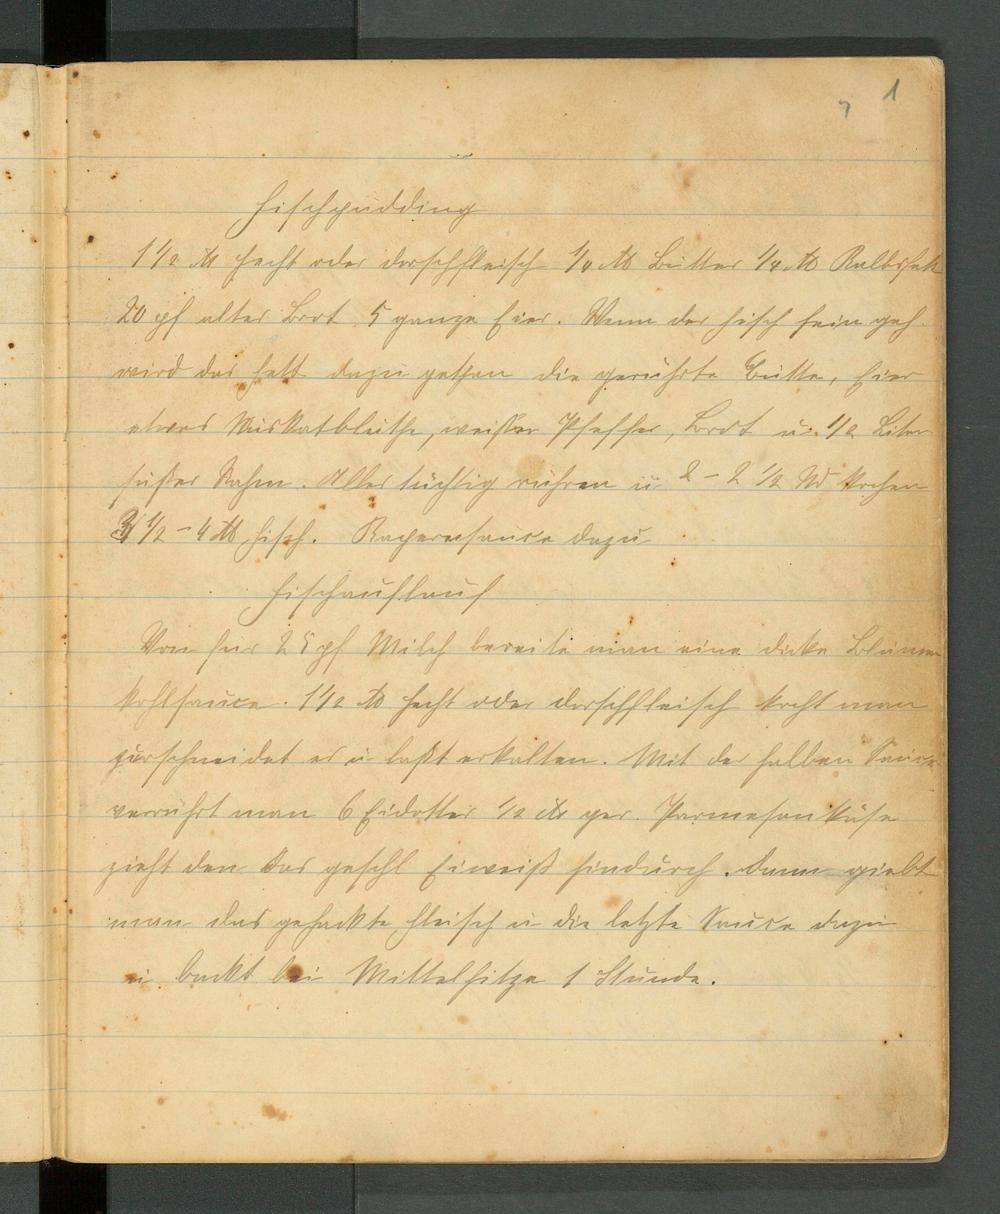 7 1
Fischpudding
1 1/2 ℔ Hecht oder Dorschfleisch 1/4 ℔ Butter 1/4 ℔ Kalbsfett
20 pf altes Brot 5 ganze Eier. Wenn der Fisch fein geh.
wird das Fett dazu gethan die gerührte Butter, Eier
etwas Muskatblüthe, weißer Pfeffer, Brot u. 1/2 Liter
süßer Rahm. Alles tüchtig rühren u 2 - 2 1/2 Std kochen
3 1/2 - 4 ℔ Fisch. Kapernsauce dazu
Fischauflauf
Von für 25 pf Milch bereite man eine dicke Blumen
kohlsauce. 1 1/2 ℔ Hecht oder Dorschfleisch kocht man
zerschneidet es u laßt erkalten. Mit der halben Sauce
verrührt man 6 Eidotter 1/2 ℔ ger. Parmesankäse
zieht den das geschl Eiweiß hindurch. Dann giebt
man das gehackte Fleisch u die letzte Sauce dazu
u backt bei Mittelhitze 1 Stunde.